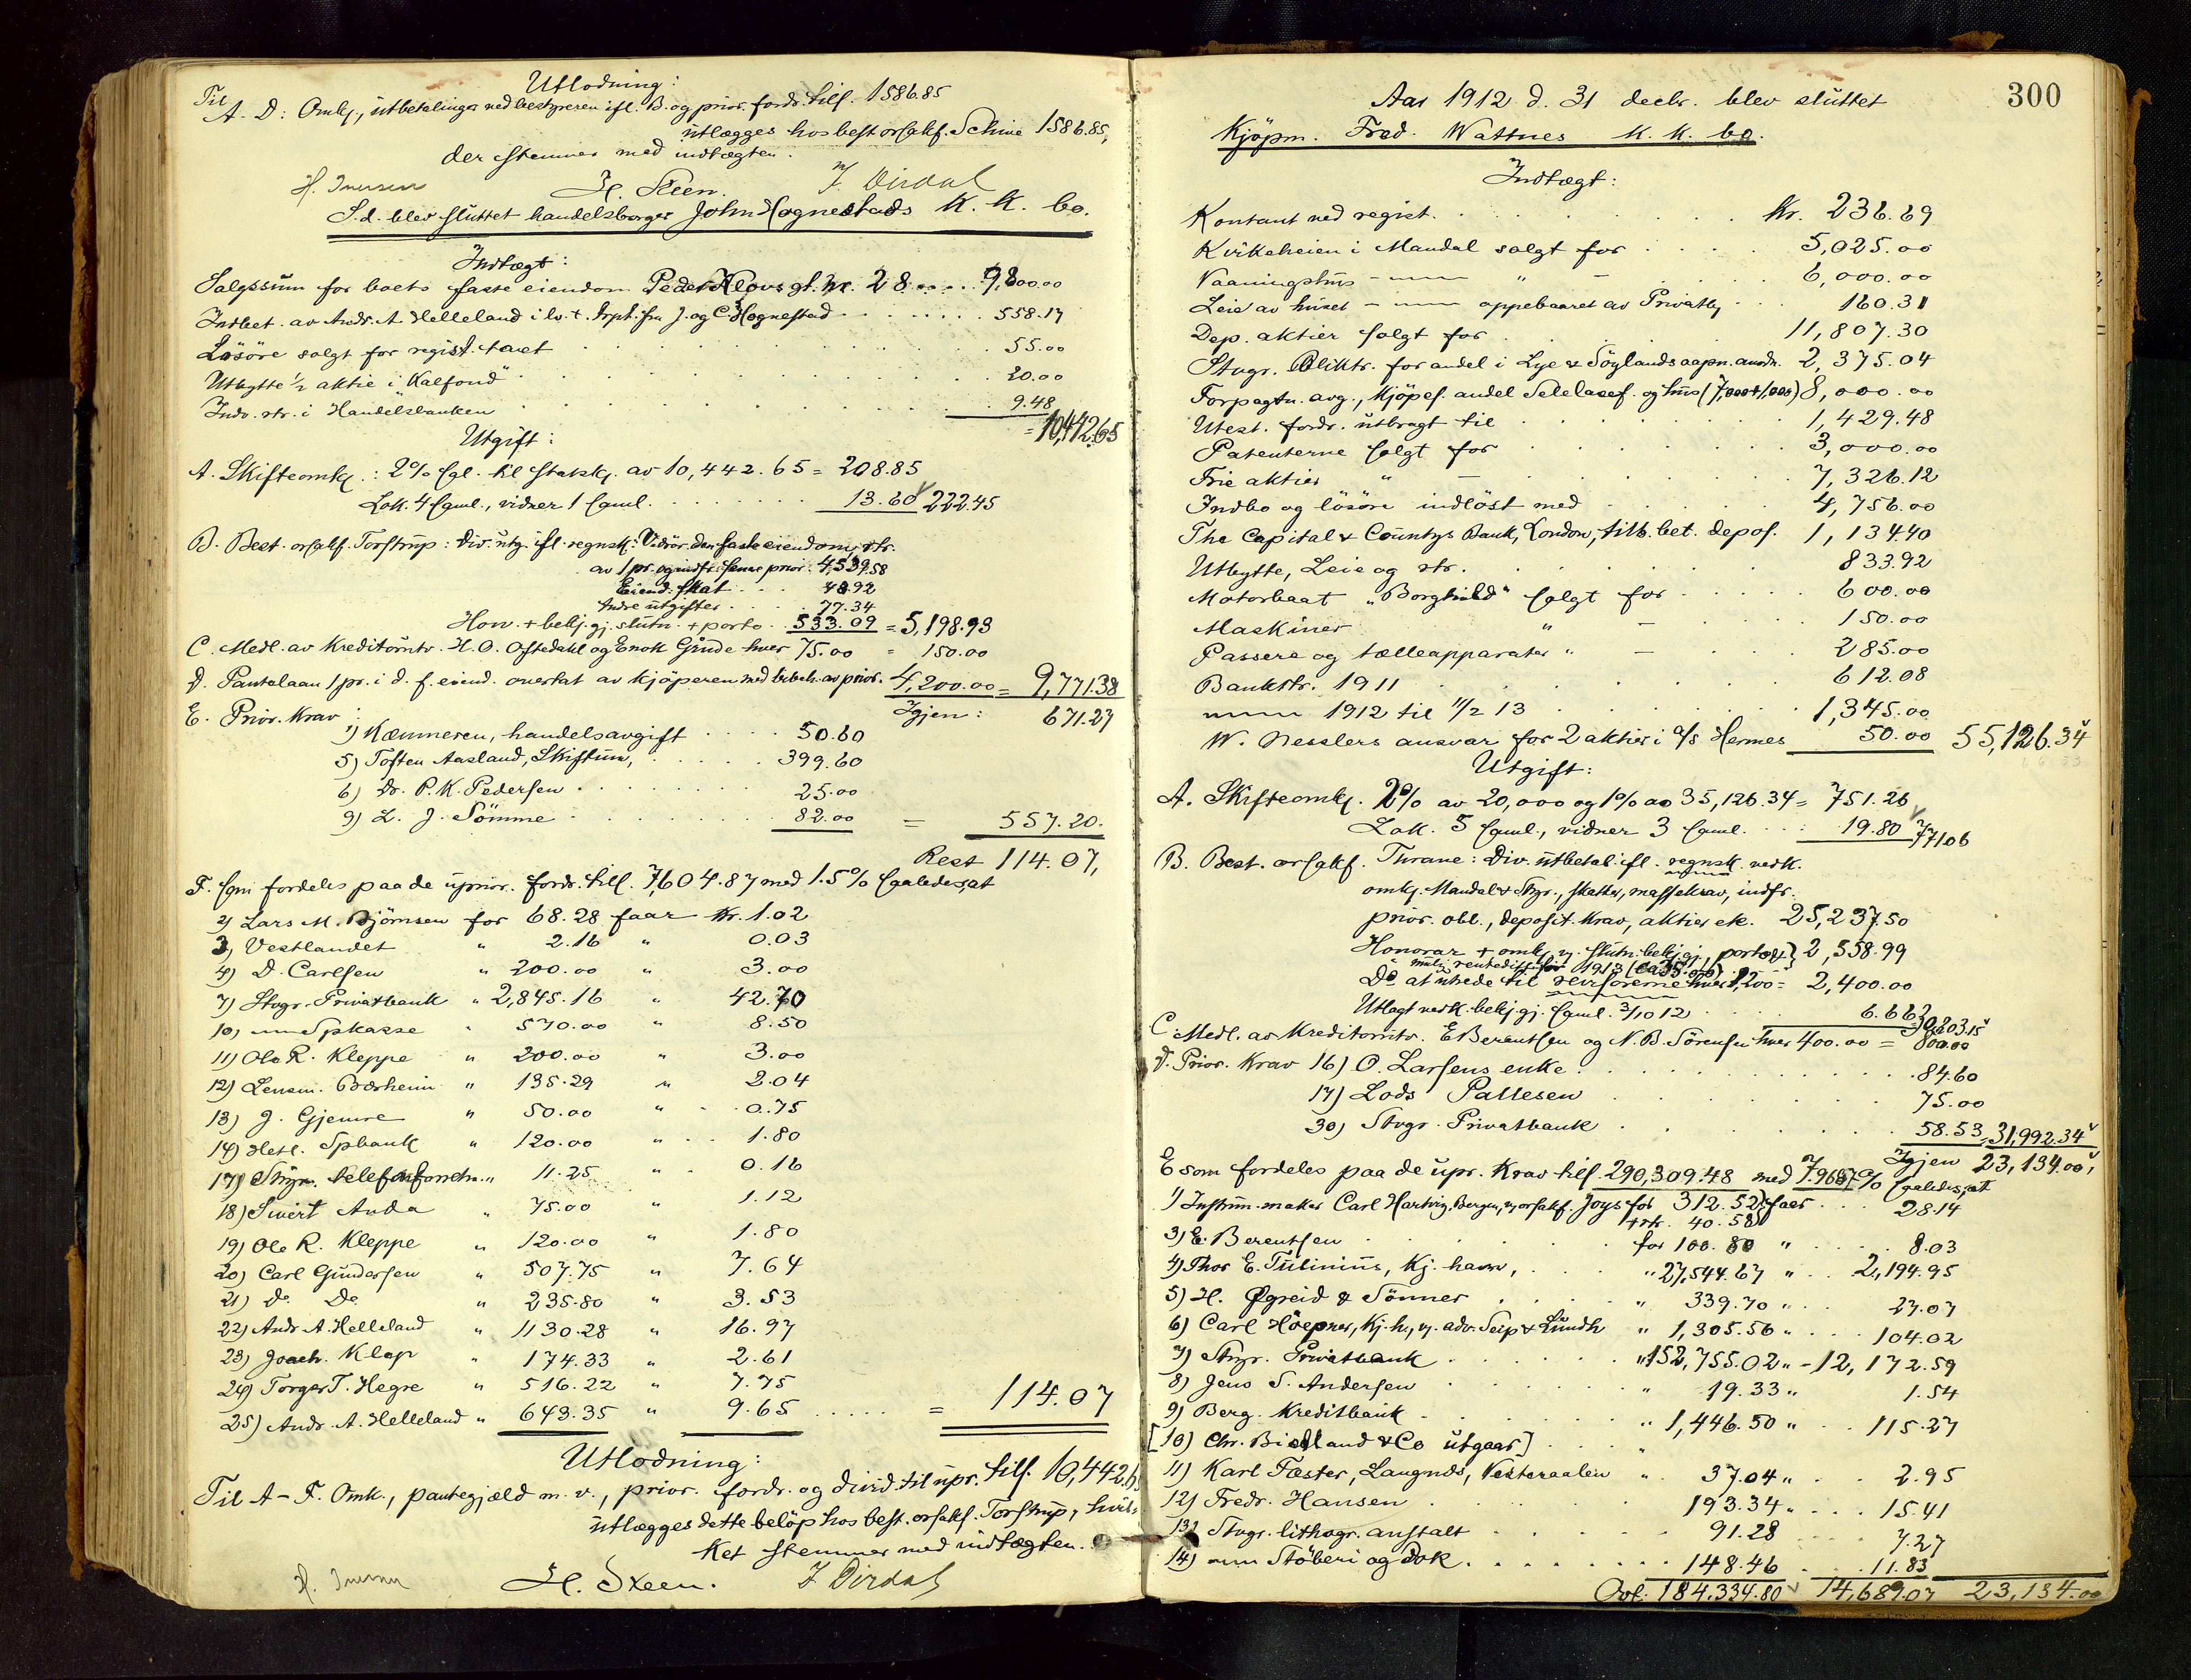 Utlodning:
Til A-D: Omk., utbetalinger ved bestyreren ifl. B. og prior. fordr. tills. 1586.85
utlægges hos best. orsakf. Schiue 1586.85,
der stemmer med indtægten.
H. Iversen H. Skeen. J. Dirdal
S.d. blev sluttet handelsborger John Hognestads K. K. bo.
Indtægt:
Salgssum for boets faste eiendom Peder Klovs gt. Nr. 28 .... 9,800.00
Indbet. av Andr. A. Helleland i lv. t. frpt. fra J. og C. Hognestad 558.17
Lösöre solgt for regist. taxt 55.00
Utbytte 1/2 aktie i "Kalfond" 20.00
Indv. rtr. i Handelsbanken 9.48
= 10,442.65
Utgift:
A. Skifteomk.: 2% sgl. til statsk. av 10,442.65 = 208.85
Lok. 4 saml., vidner 1 saml. 13.60 222.45
B. Best. orsakf. Torstrup: Div. utg. ifl. regnsk.: Vedrör. den faste eiendom, rtr.
av 1 pr. og indfr. senere prior. 4,539.58
Eiend. skat 48.92
Andre utgifter 77.34
Hon. + bekj.gj. slutn. + porto 533.09 = 5,198.93
C. Medl. av Kreditorutv. H. O. Oftedahl og Enok Grude hver 75.00 = 150.00
D. Pantelaan 1 pr. i d. f. eiend. overtat av kjöperen med bibeh. av prior. 4,200.00 = 9,771.38
Igjen: 671.27
E. Prior. Krav:
1) Kæmneren, handelsavgift 50.60
5) Toften Aasland, Skiftun, 399.60
6) Dr. P. K. Pedersen 25.00
9) L. J. Sömme 82.00 = 557.20.
Rest 114.07,
F. som fordeles paa de uprior. fordr. tills. 7,604.87 med 1.5% saaledes, at
2) Lars M. Björnsen for 68.28 faar Kr. 1.02
3) Vestlandet " 2.16 " 0.03
4) D. Carlsen " 200.00 " 3.00
7) Stvgr. Privatbank " 2,845.16 " 42.70
10) — Spkasse " 570.00 " 8.50
11) Ole R. Kleppe " 200.00 " 3.00
12) Lensm. Bærheim " 135.29 " 2.04
13) J. Gjemre " 50.00 " 0.75
14) Hetl. Spbank " 120.00 " 1.80
17) Stvgr. telefonforretn. " 11.25 " 0.16
18) Sivert Anda " 75.00 " 1.12
19) Ole R. Kleppe " 120.00 " 1.80
20) Carl Gundersen " 507.75 " 7.64
21) Do Do " 235.80 " 3.53
22) Andr. A. Helleland " 1130.28 " 16.97
23) Joach. Klop " 174.33 " 2.61
24) Torger T. Hegre " 516.22 " 7.75
25) Andr. A. Helleland " 643.35 " 9.65 = 114.07
Utlodning:
Til A-F. Omk., pantegjæld m. v., prior. fordr. og divid. til upr. tills. 10,442.6
utlægges dette belöp hos best. orsakf. Torstrup, hvil-
ket stemmer med indtægten.
H. Iversen H. Skeen. J. Dirdal
300
Aar 1912 d. 31 decbr. blev sluttet
Kjöpm. Fred. Wattnes K. K. bo.
Indtægt:
Kontant ved regist. Kr. 236.69
Kirkeheien i Mandal solgt for 5,025.00
Vaaningshus — " — 6,000.00
Leie av huset — oppebaaret av Privatbk. 160.31
Dep. aktier solgt for 11,807.30
Stvgr. Bliktr. for andel i Lye & Söylands aapn. andr. 2,375.04
Forpagtn. avg., Kjöpes. andel Selelases. og hus (7,000+1,000) 8,000.00
Utest. fordr. utbragt til 1,429.48
Patenterne solgt for 3,000.00
Frie aktier " — 7,326.12
Indbo og lösöre indlöst med 4,756.00
The Capital & Countys Bank, London, tilb. bet. depos. 1,134.40
Utbytte, Leie og rtr. 833.92
Motorbaat "Borghild" solgt for 600.00
Maskiner " — 150.00
Passere og tælleapparater " — 285.00
Bankrtr. 1911 612.08
— 1912 til 11/2 13 1,345.00
W. Nesslers ansvar for 2 aktier i A/S Hermes 50.00 55,126.34
Utgift:
A. Skifteomk. 2% av 20,000 og 1% av 35,126.34 = 751.26
Lok. 5 saml., vidner 3 saml. 19.80 771.06
B. Best. orsakf. Thrane: Div. utbetal. ifl. regnsk. vedk.
omk. Mandal & Stvgr., skatter, massekrav, indfr.
prior. obl., deposit. Krav, aktier etc. 25,237.50
Honorar + omk. v. slutn. bekj.gj., porto &} 2,558.99
mulig rentediff. for 1913 (ca 35.00)
Do at utrede til revisorerne hver 1,200 = 2,400.00
Utlagt vedk. bekj.gj. saml. 3/10 12 6.66 30,203.15
C. Medl. av Kreditorutv. E Berentsen og N. B. Sörensen hver 400.00 = 800.00
D. Prior. Krav 16) O. Larsens enke 84.60
17) Lods Pallesen 75.00
30) Stvgr. Privatbank 58.53 = 31,992.34
Igjen 23,134.00,
E som fordeles paa de upr. Krav tills. 290,309.48 med 7.9687% saaledes, at
1) Instrum. maker Carl Hartvig, Bergen, v. orsakf. Joys for 312.52} faar 28.14
+ rtr. 40.58
3) E. Berentsen for 100.80 " 8.03
4) Thor E. Tulinius, Kj. havn, " 27,544.67 " 2,194.95
5) H. Øgreid & Sönner " 339.70 " 27.07
6) Carl Höepner, Kj. h., v. adv. Seip & Lundh " 1,305.56 " 104.02
7) Stvgr. Privatbank " 152,755.02 " - 12,172.59
8) Jens S. Andersen " 19.33 " 1.54
9) Berg. Kreditbank " 1,446.50 " 115.27
[10) Chr. Bielland & Co utgaar]
11) Karl Fæster, Laugnds, Vesteraalen " 37.04 " 2.95
12) Fredr. Hansen 193.34 " 15.41
13) Stvgr. lithogr. anstalt 91.28 7.27
14) — Stöberi og Dok 148.46 11.83
Ovf. 184,334.80 14,689.07 23,134.00